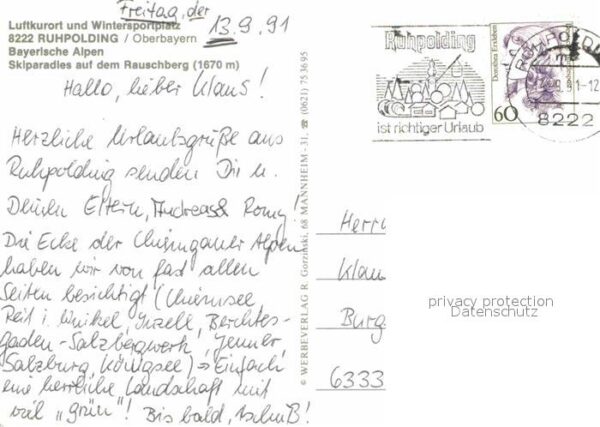 Freitag, der
13.9.91
Luftkurort und Wintersportplatz
8222 RUHPOLDING / Oberbayern
Bayerische Alpen
Skiparadies auf dem Rauschberg (1670 m)
Hallo, lieber Klaus!
Herzliche Urlaubsgrüße aus
Ruhpolding senden Dir u.
Deinen Eltern, Andreas & Romy!
Die Ecke der Chiemgauer Alpen
haben wir von fast allen
Seiten besichtigt (Chiemsee,
Reit i. Winkel, Inzell, Berchtes-
gaden-Salzbergwerk, Jenner,
Salzburg, Königsee) → Einfach
eine herrliche Landschaft mit
viel "grün"! Bis bald, tschüß!
© WERBEVERLAG R. Gorzinski, 68 MANNHEIM - 31, ☎ (0621) 753695
Ruhpolding
ist richtiger Urlaub
Dorothea Erxleben
60
RUHPOLDING
8222
Herrn
Klau
Burg
6333
privacy protection
Datenschutz